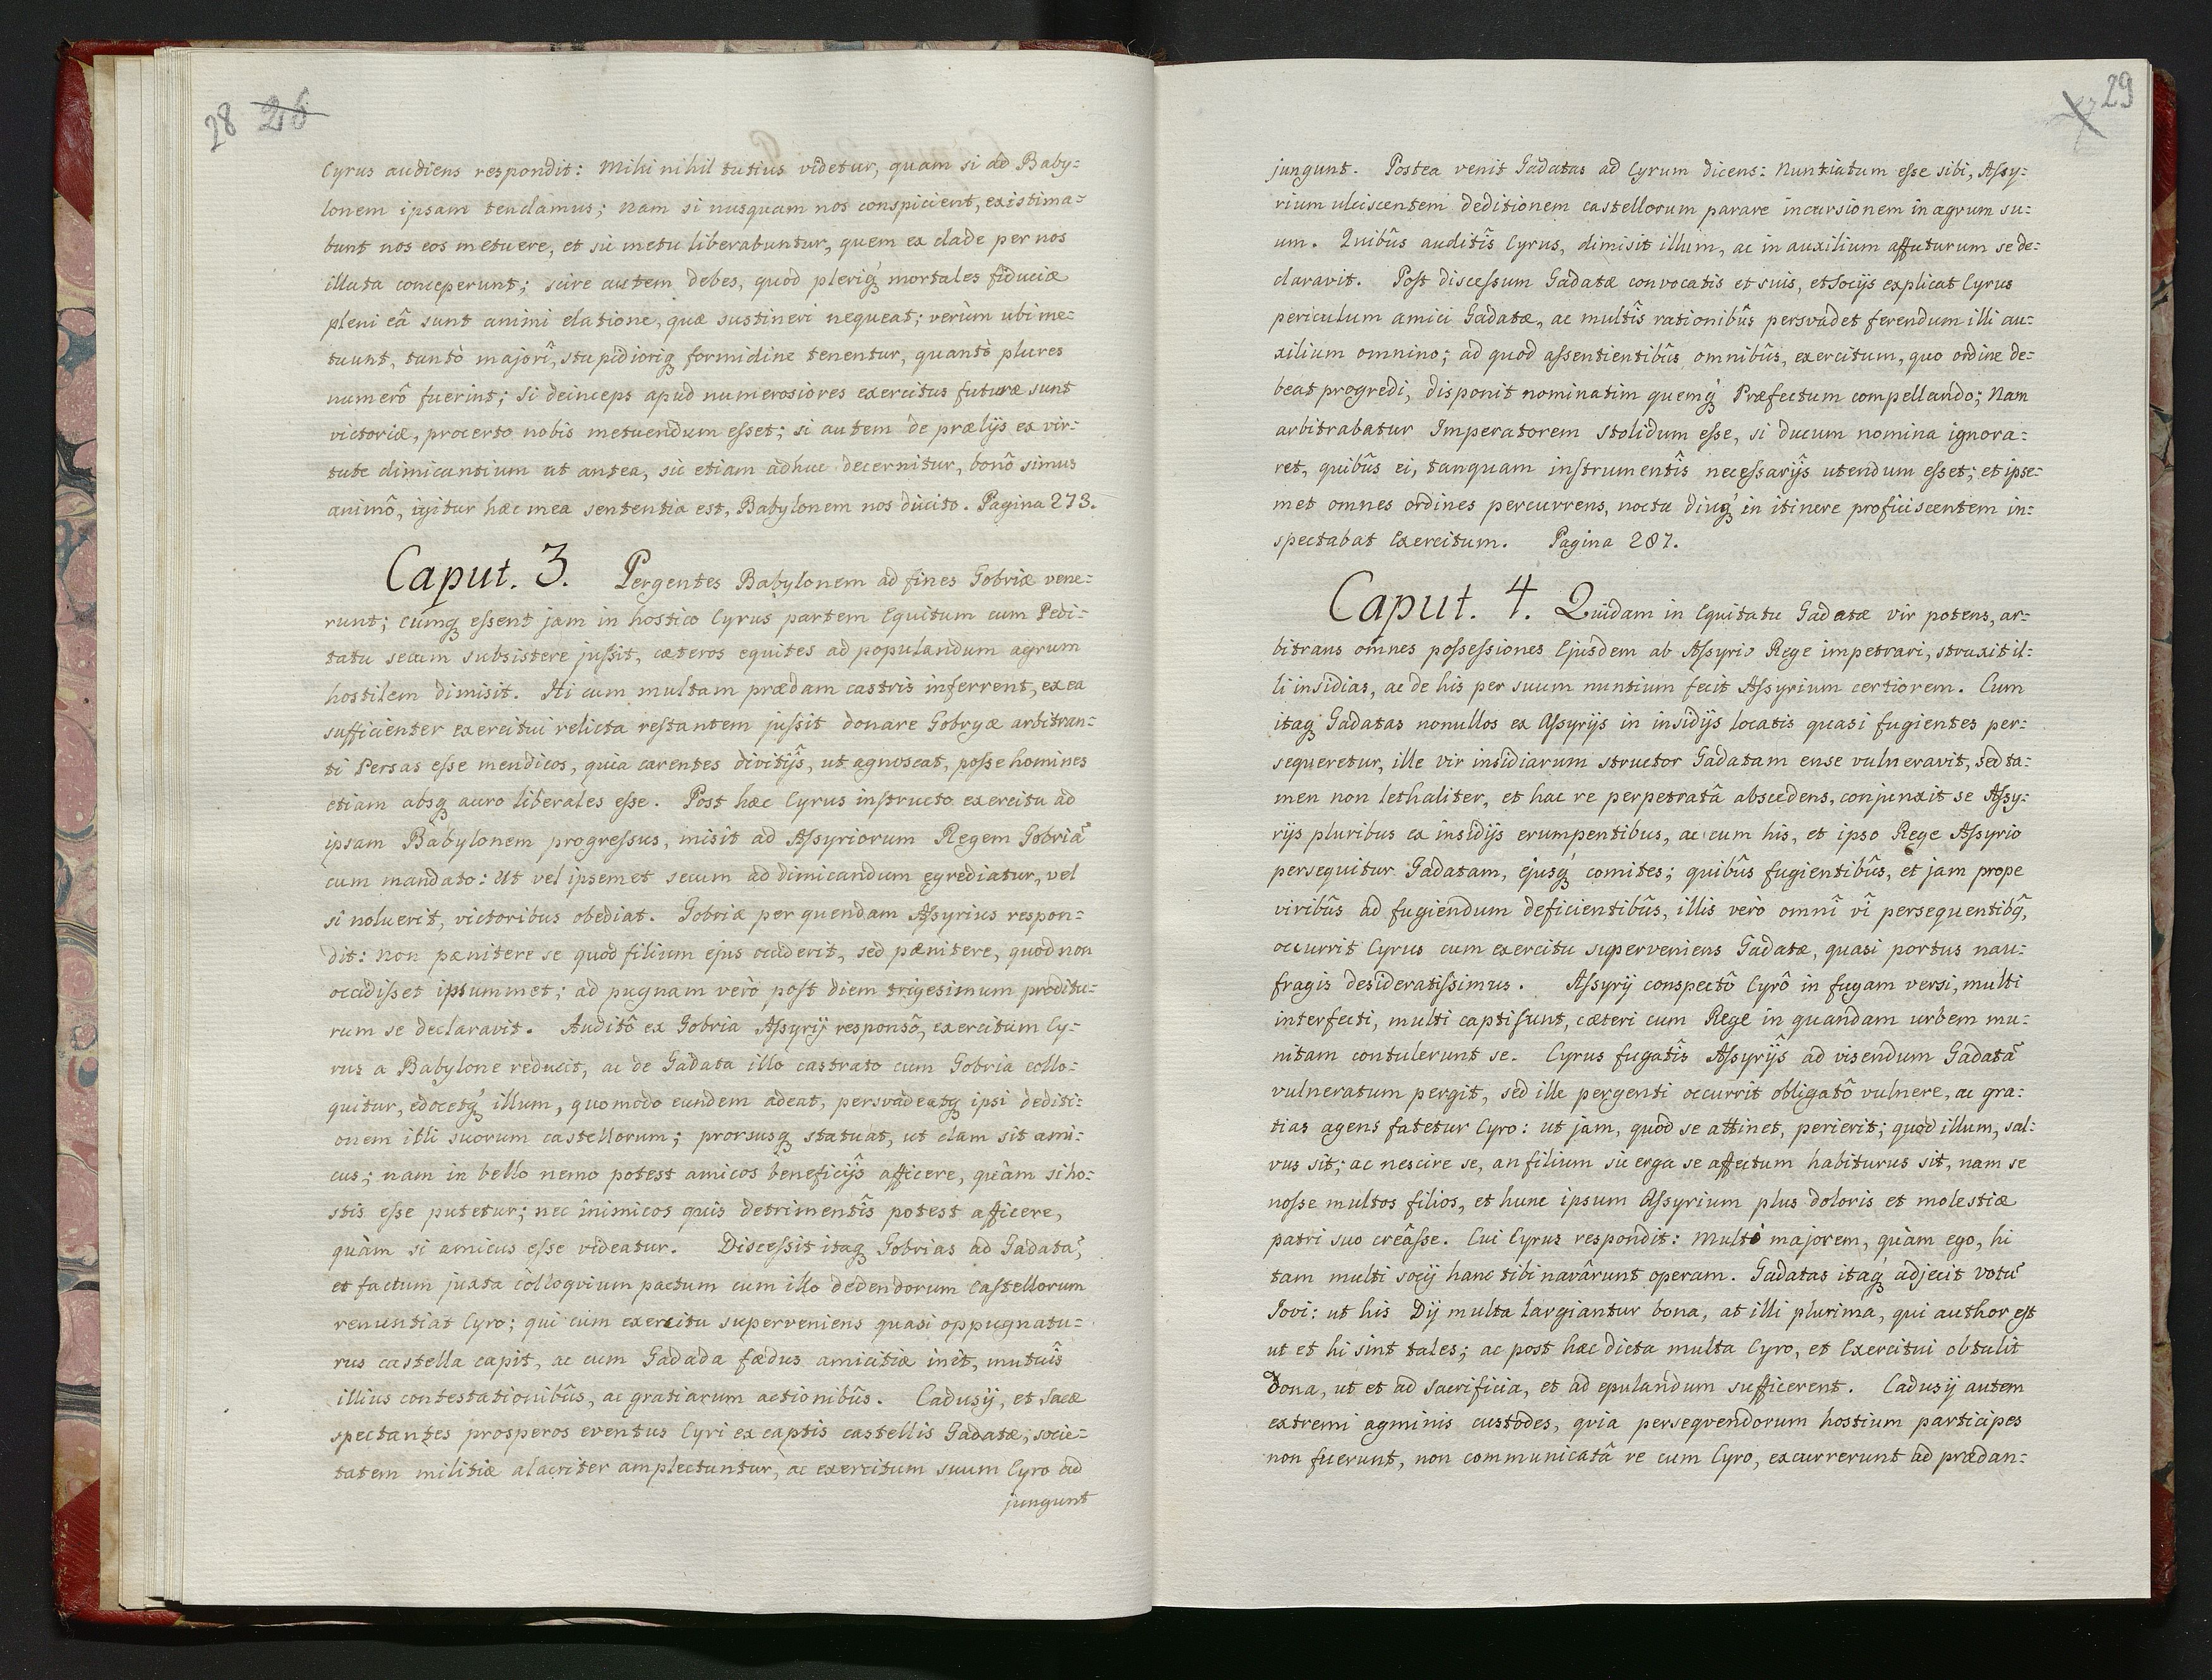 28 26
Cyrus audiens respondit: Mihi nihil tutius videtur, quam si ad Baby-
lonem ipsam tendamus; nam si nusquam nos conspicient, existima-
bunt nos eos metuere, et sic metu liberabuntur, quem ex clade per nos
illata conceperunt; scire autem debes, quod pleriq́ mortales fiduciæ
pleni eâ sunt animi elatione, quæ sustineri nequeat; verùm ubi me-
tuunt, tantò majorî, stupidioriq formidine tenentur, quantò plures
numerô fuerint; Si deinceps apud numerosiores exercitus futuræ sunt
victoriæ, procerto nobis metuendum eſset; si autem de prælijs ex vir-
tute dimicantium ut antea, sic etiam adhuc decernitur, bonô simus
animô, igitur hæc mea sententia est, Babylonem nos ducito. Pagina 273.
Caput. 3. Pergentes Babylonem ad fines Gobriæ vene-
runt; cumq eſsent jam in hostico Cyrus partem Equitum cum Pedi-
tatu secum subsistere juſsit, cæteros equites ad populandum agrum
hostilem dimisit. Hi cum multam prædam castris inferrent, ex ea
sufficienter exercitui relicta reſtantem juſsit donare Gobryæ arbitran-
ti Persas eſse mendicos, quia carentes divitijs̑, ut agnoscat, poſse homines
etiam absq auro liberales eſse. Post hæc Cyrus inſtructo exercitu ad
ipsam Babylonem progreſsus, misit ad Aſsyriorum Regem Gobriã
cum mandato: Ut vel ipsemet secum ad dimicandum egrediatur, vel
si noluerit, victoribus obediat. Gobriæ per quendam Aſsyrius respon-
dit: Non pænitere se quod filium ejus occiderit, sed pænitere, quod non
occidiſset ipsummet; ad pugnam verò poſt diem trigesimum proditu-
rum se declaravit. Auditô ex Gobria Aſsyrij responsô, exercitum Cy-
rus a Babylone reducit, ac de Gadata illo castrato cum Gobria collo-
quitur, edocetq́ illum, quomodo eundem adeat, persvadeatq ipsi dediti-
onem illi suorum castellorum; prorsusq statuat, ut clam sit ami-
cus; nam in bello nemo potest amicos beneficijs̑ afficere, quàm si ho-
stis eſse putetur; nec inimicos quis detrimentîs potest afficere,
quàm si amicus eſse videatur. Disceſsit itaq Gobrias ad Gadatã,
et factum juxta colloqvium pactum cum illo dedendorum Caſtellorum
renuntiat Cyro; qui cum exercitu superveniens quasi oppugnatu-
rus castella capit, ac cum Gadada fœdus amicitiæ init, mutuîs
illius contestationibûs, ac gratiarum actionibûs. Cadusij, et Sacæ
spectantes prosperos eventus Cyri ex captis castellis Gadatæ, socie-
tatem militiæ alacriter amplectuntur, ac exercitum suum Cyro ad
jungunt
29
jungunt. Postea venit Gadatas ad Cyrum dicens: Nuntiatum eſse sibi, Aſsy-
rium ulciscentem deditionem castellorum parare incursionem in agrum su-
um. Quibûs auditîs Cyrus, dimisit illum, ac in auxilium affuturum se de-
claravit. Poſt disceſsum Gadatæ convocatis et suis, et Socijs explicat Cyrus
periculum amici Gadatæ, ac multîs rationibûs persvadet ferendum illi au-
xilium omnino; ad quod aſsentientibûs omnibûs, exercitum, quo ordine de-
beat progredi, disponit nominatim quemq́ Præfectum compellando; Nam
arbitrabatur Imperatorem stolidum eſse, si ducum nomina ignora-
ret, quibûs ei, tanquam inſtrumentîs neceſsarijs̑ utendum eſset; et ipse-
met omnes ordines percurrens, noctu diuq́ in itinere proficiscentem in-
spectabat Exercitum. Pagina 287.
Caput. 4. Quidam in Equitatu Gadatæ vir potens, ar-
bitrans omnes poſseſsiones Ejusdem ab Aſsyrio Rege impetrari, struxit il-
li insidias, ac de his per suum nuntium fecit Aſsyrium certiorem. Cum
itaq Gadatas nonullos ex Aſsyrijs in insidijs locatis quasi fugientes per-
sequeretur, ille vir insidiarum structor Gadatam ense vulneravit, sed ta-
men non lethaliter, et hac re perpetratâ abscedens, conjunxit se Aſsy-
rijs pluribus ex insidijs erumpentibus, ac cum his, et ipso Rege Aſsyrio
persequitur Gadatam, ejusq́ comites; quibûs fugientibûs, et jam prope
viribûs ad fugiendum deficientibûs, illis verò omnî vî persequentibq̃,
occurrit Cyrus cum exercitu superveniens Gadatæ, quasi portus nau-
fragis desideratiſsimus. Aſsyrij conspectô Cyrô in fugam versi, multi
interfecti, multi capti ſunt, cæteri cum Rege in quandam urbem mu-
nitam contulerunt se. Cyrus fugatîs Aſsyrijs̑ ad visendum Gadatã
vulneratum pergit, sed ille pergenti occurrit obligatô vulnere, ac gra-
tias agens fatetur Cyro: ut jam, quod se attinet, perierit; quod illum, sal-
vus sit; ac nescire se, an filium sic erga se affectum habiturus sit, nam se
noſse multos filios, et hunc ipsum Aſsyrium plus doloris et molestiæ
patri suo creâſse. Cui Cyrus respondit: Multò majorem, quàm ego, hi
tam multi socij hanc tibi navârunt operam. Gadatas itaq́ adjecit votũ
Jovi: ut his Dij multa largiantur bona, at illi plurima, qui author eſt
ut et hi sint tales; ac post hæc dicta multa Cyro, et Exercitui obtulit
dona, ut et ad sacrificia, et ad epulandum sufficerent. Cadusij autem
extremi agminis custodes, qvia perseqvendorum hostium participes
non fuerunt, non communicatâ re cum Cyro, excurrerunt ad prædan-